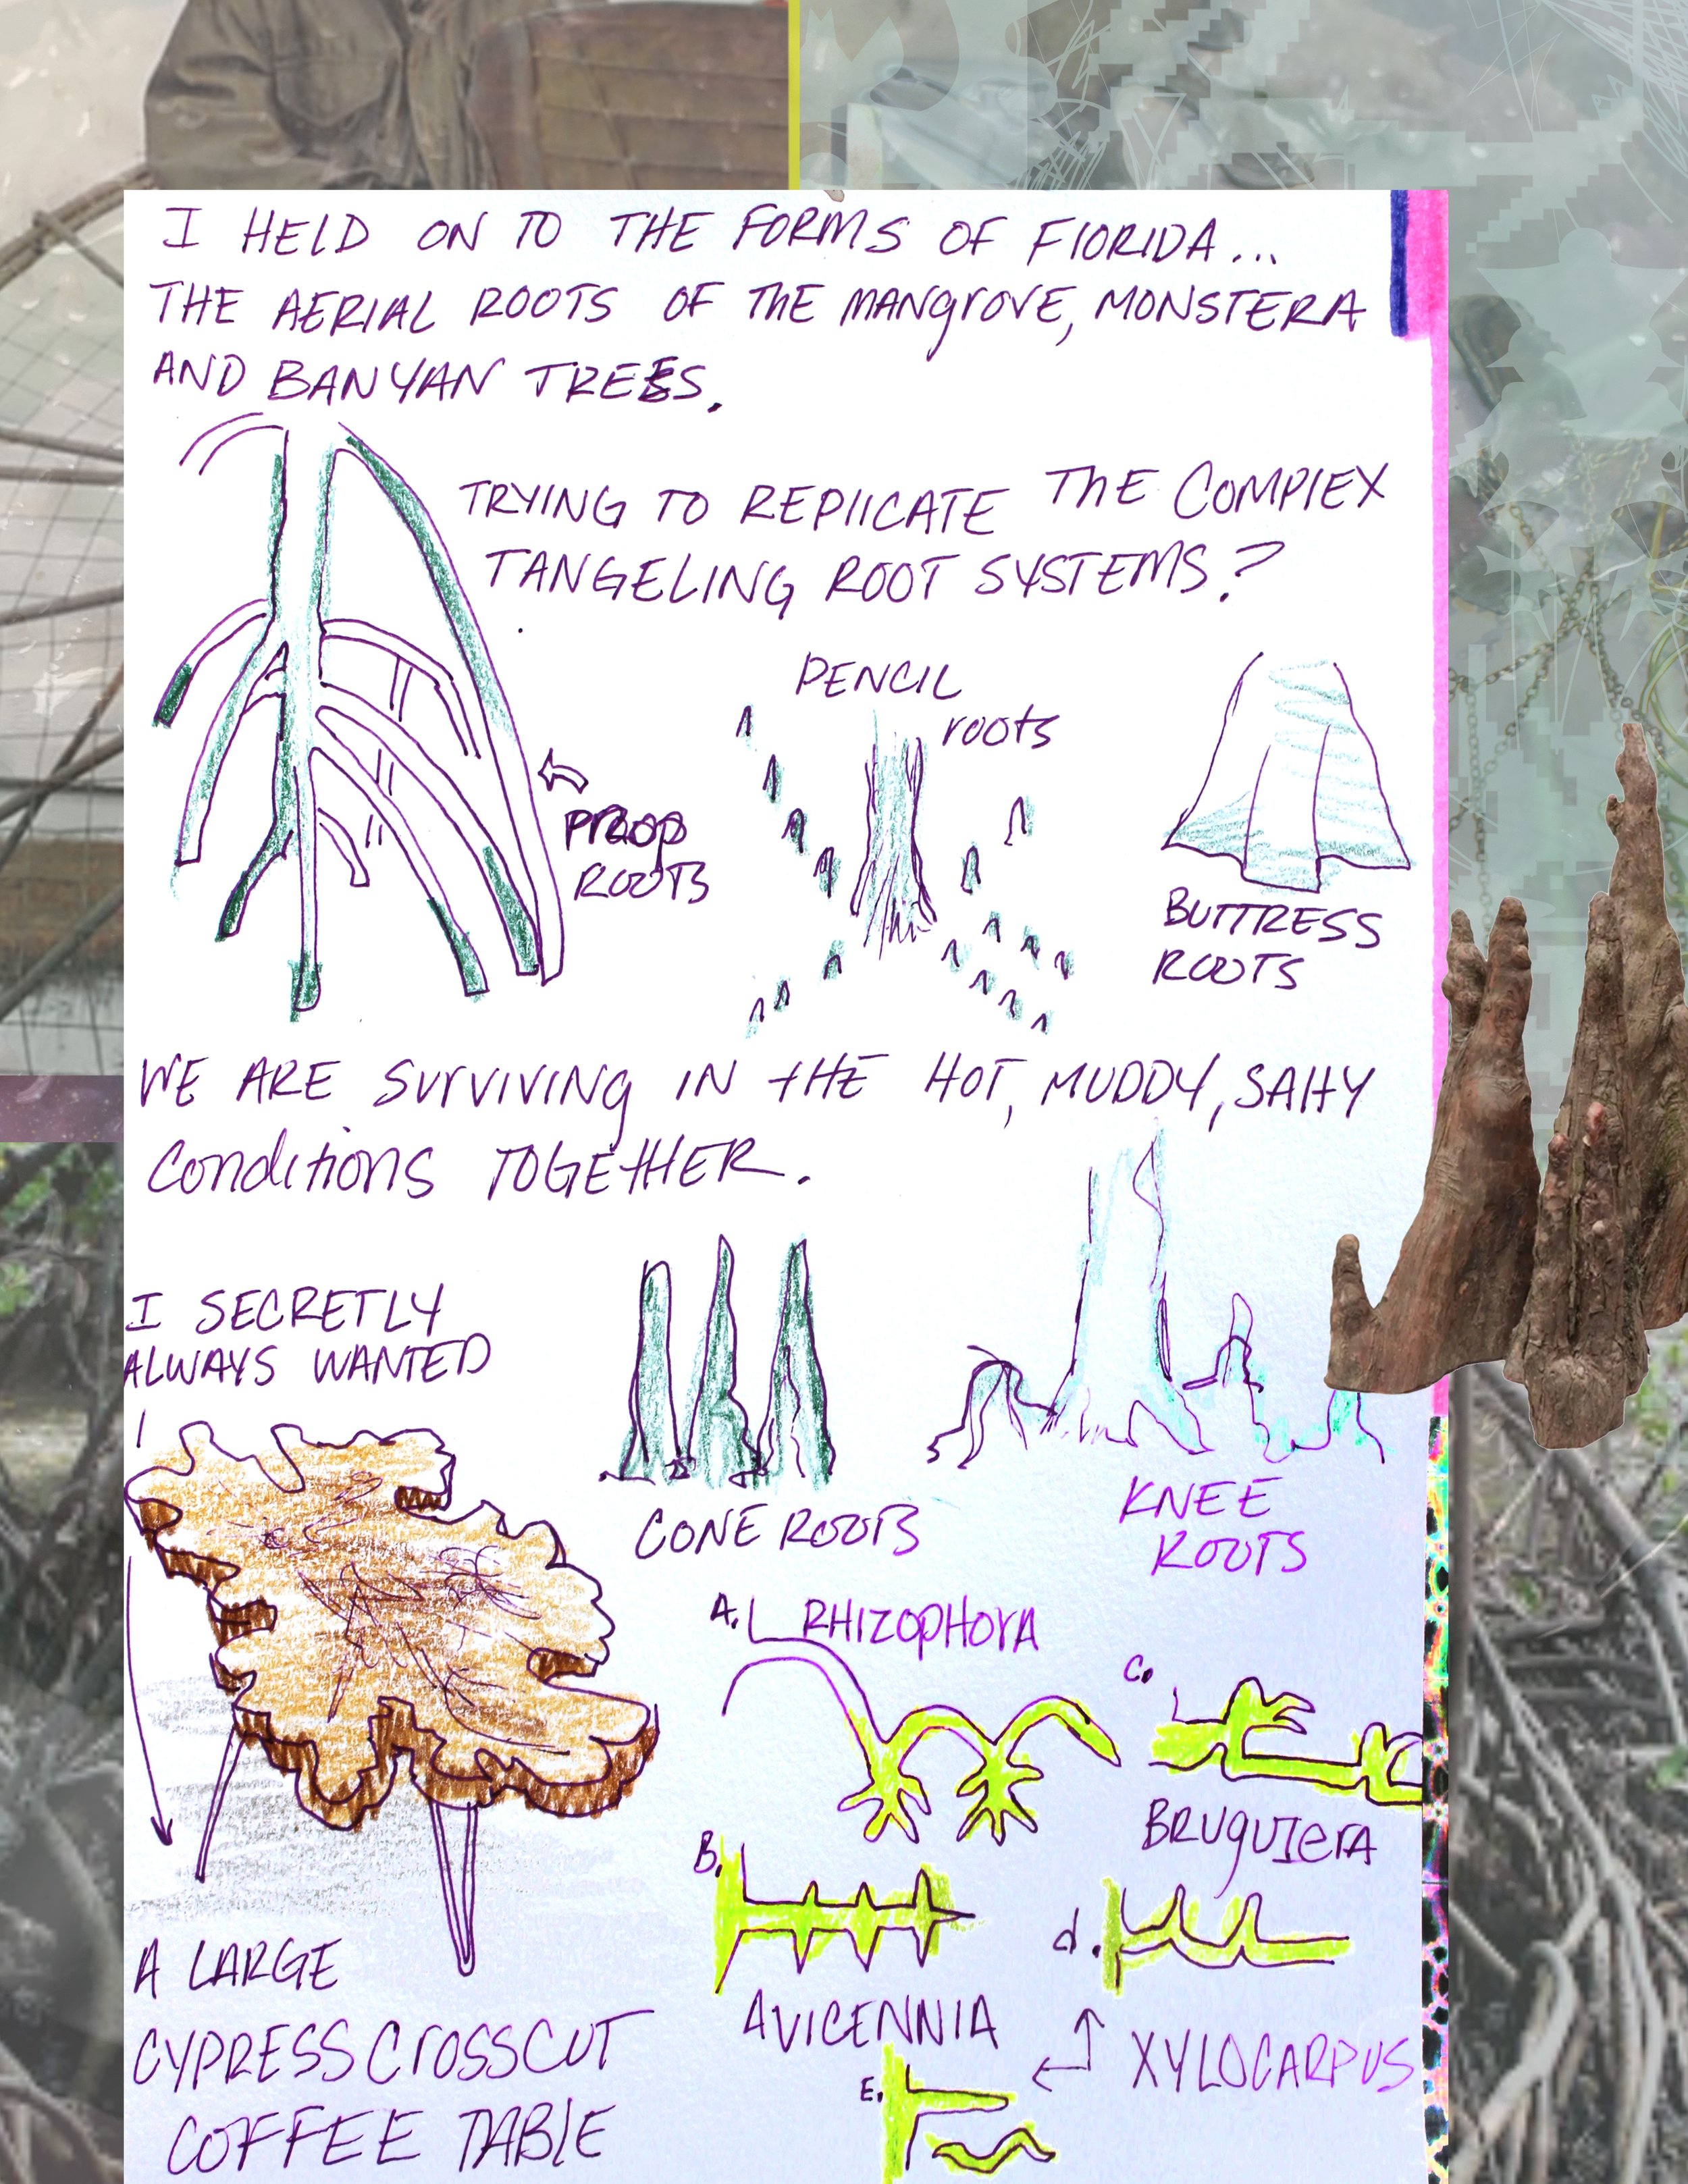 I HELD ON TO THE FORMS OF FlORIDA...
THE AERIAL ROOTS OF THE MANgrovE, MONSTERA
AND BANYAN TREES.
TRYING TO REPlICATE THE COMPlEX
TANGELING ROOT SYSTEMS?
PENCIL
roots
PROP
ROOTS
BUTTRESS
ROOTS
WE ARE SurVIVINg IN tHE HOT, MUDDY, SAltY
Conditions TOGEtHER.
I SECRETLY
ALWAYS WANTED
CONE ROOTS
KNEE
ROOTS
A. RHIZOpHOrA
C.
BRUguIerA
B.
d.
A LARGE
CYPRESS CrOSSCUT
COFFEE TABlE
AVICENNIA
XYLOCARPUS
E.